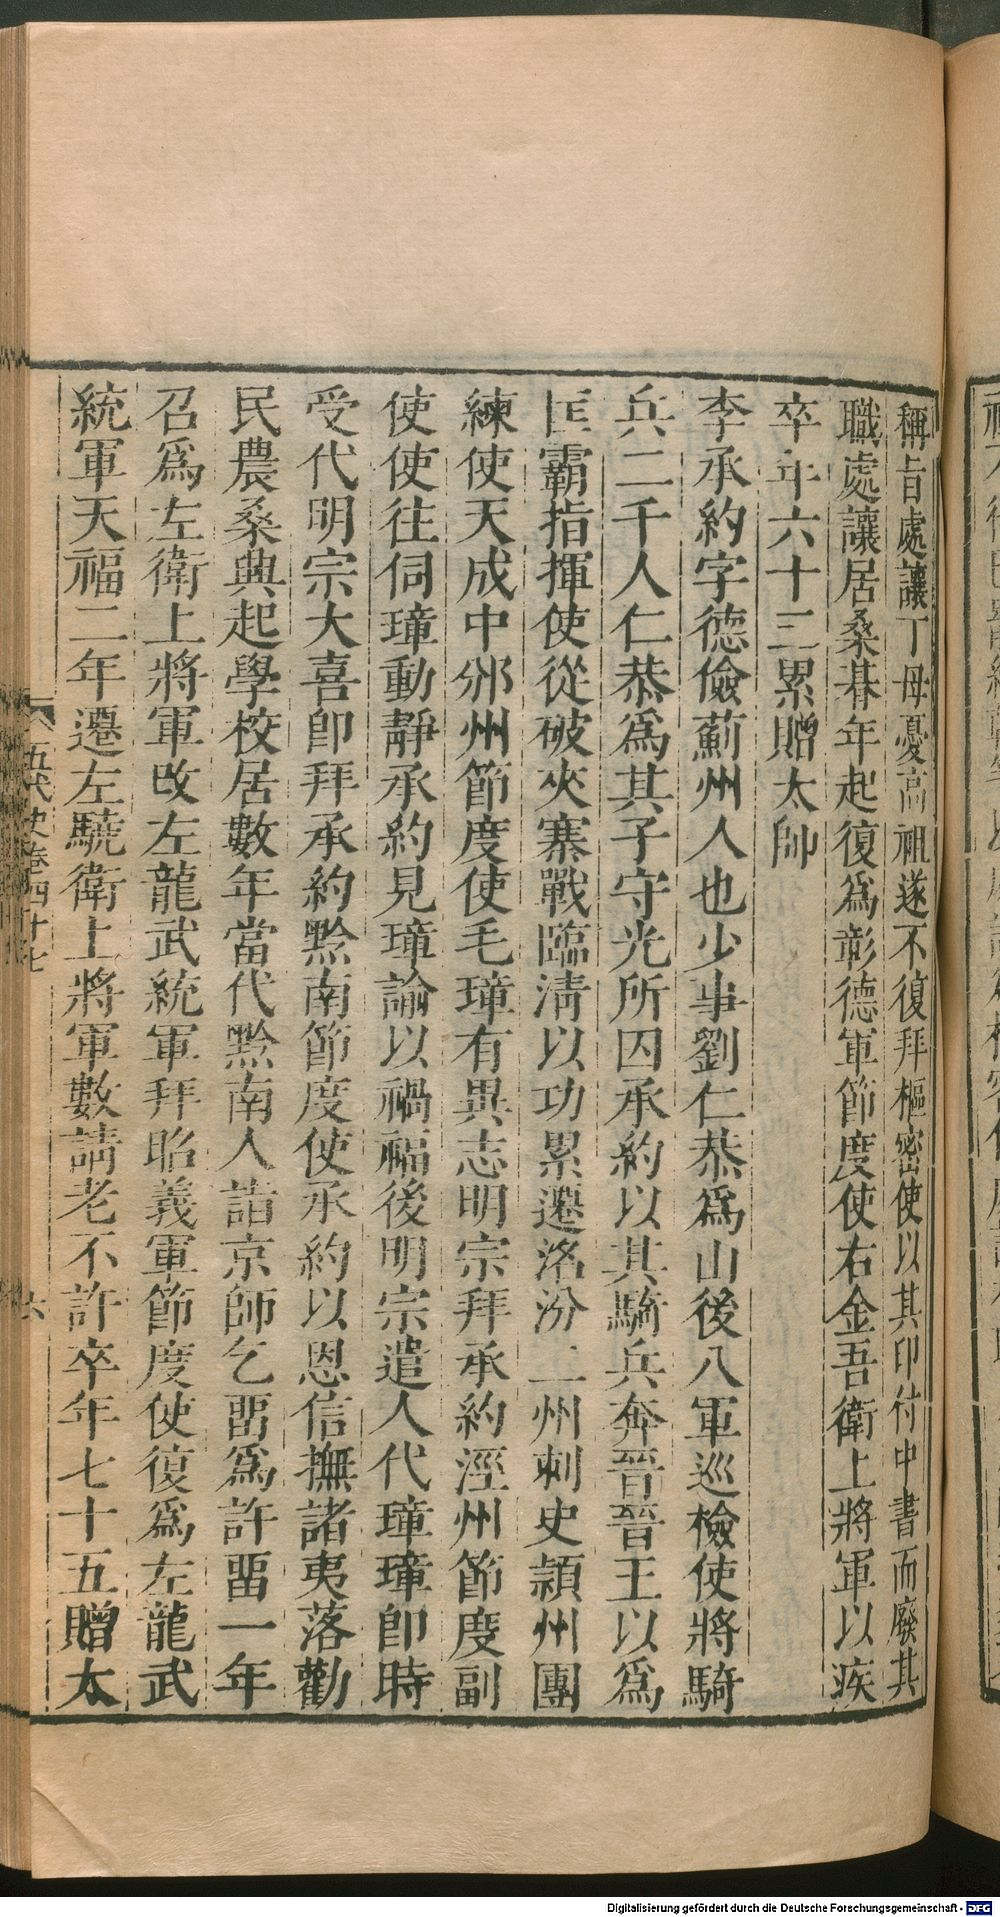 稱旨處讓丁母憂高祖遂不復拜樞密使以其印付中書而廢其
職處讓居桑朞年起復爲彰德軍節度使右金吾衛上將軍以疾
卒年六十三累贈太師
李承約字德儉薊州人也少事劉仁恭爲山後八軍巡檢使將騎
兵二千人仁恭爲其子守光所囚承約以其騎兵奔晉晉王以爲
匡霸指揮使從破夾寨戰臨淸以功累遷洺汾二州刺史潁州團
練使天成中邠州節度使毛璋有異志明宗拜承約涇州節度副
使使往伺璋動靜承約見璋諭以禍福後明宗遣人代璋璋卽時
受代明宗大喜卽拜承約黔南節度使承約以恩信撫諸夷落勸
民農桑興起學校居數年當代黔南人詣京師乞畱爲許畱一年
召爲左衛上將軍改左龍武統軍拜昭義軍節度使復爲左龍武
統軍天福二年遷左驍衛上將軍數請老不許卒年七十五贈太
五代史卷四十七
六
Digitalisierung gefördert durch die Deutsche Forschungsgemeinschaft - DFG